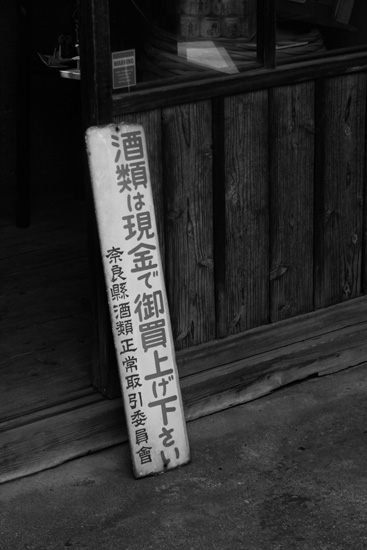 酒類は現金で御買上げ下さい
奈良縣酒類正常取引委員會